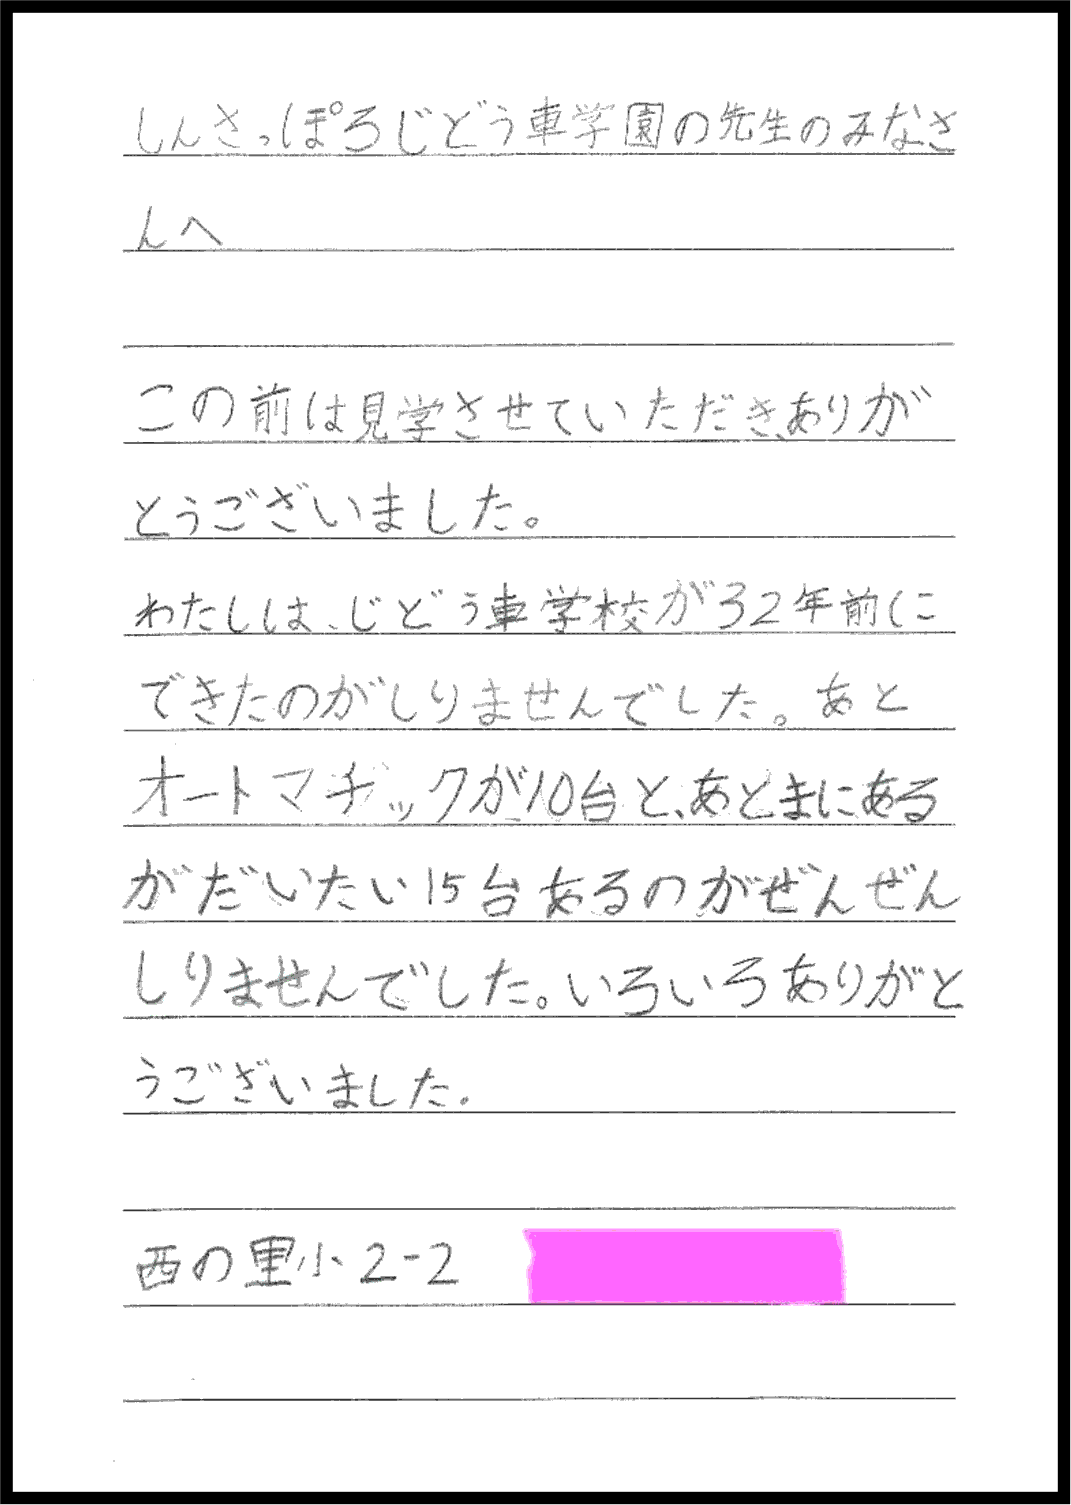 しんさっぽろじどう車学園の先生のみなさ
んへ
この前は見学させていただき、ありが
とうございました。
わたしは、じどう車学校が32年前に
できたのがしりませんでした。あと
オートマヂックが10台と、あとまにある
がだいたい15台あるのがぜんぜん
しりませんでした。いろいろありがと
うございました。
西の里小2-2